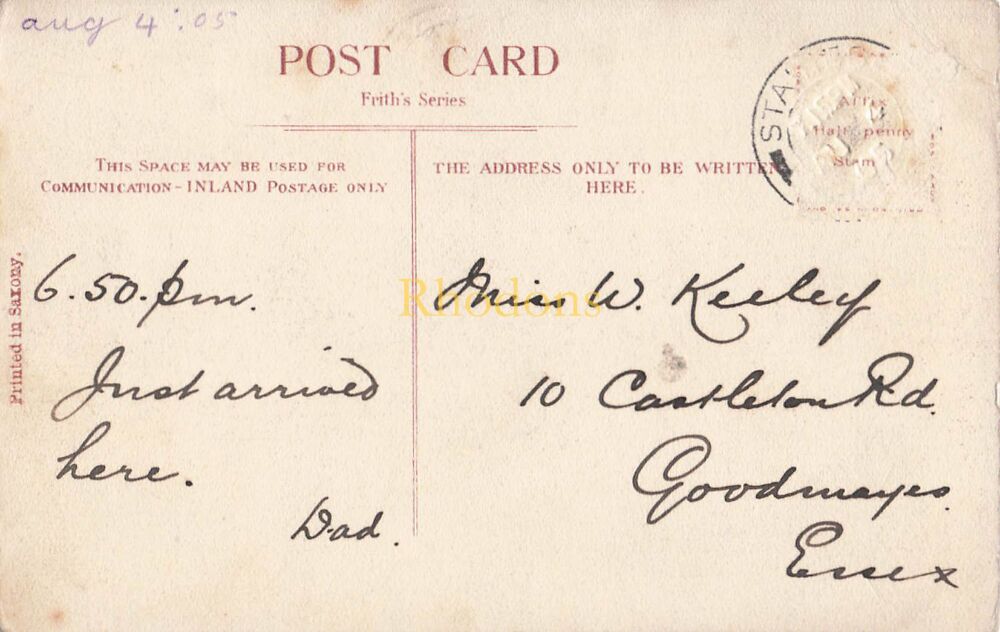 aug 4:05
POST CARD
Frith's Series
THIS SPACE MAY BE USED FOR
COMMUNICATION - INLAND POSTAGE ONLY
THE ADDRESS ONLY TO BE WRITTEN
HERE.
Affix
Half-penny
Stamp
Printed in Saxony.
6.50.pm.
Just arrived
here.
Dad.
Miss W. Keeley
10 Castleton Rd.
Goodmayes.
Essex
Rhodons